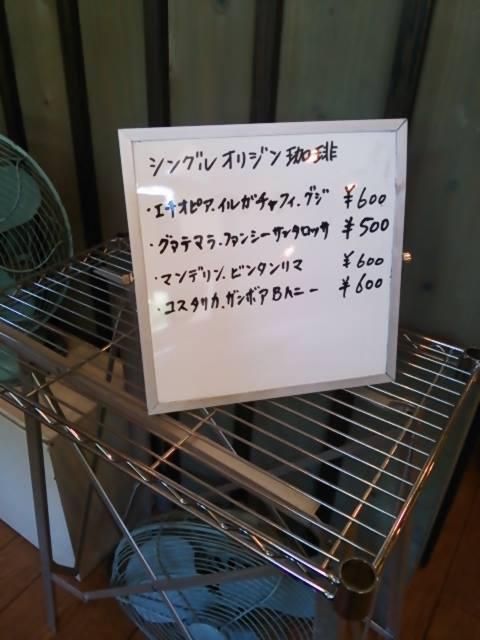 シングルオリジン珈琲
・エチオピア.イルガチャフィ.グジ ¥600
・グアテマラ.ファンシーサンタロッサ ¥500
・マンデリン.ビンタンリマ ¥600
・コスタリカ.ガンボアBハニー ¥600